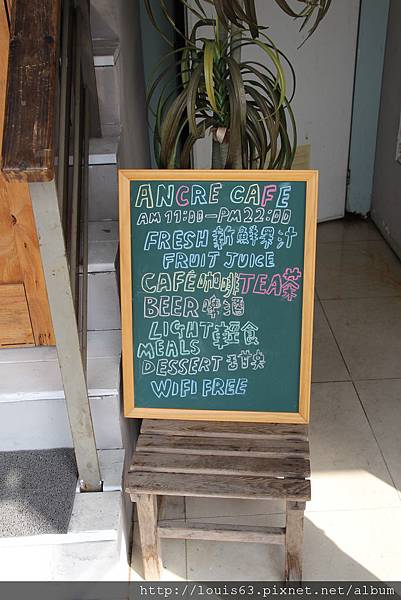 ANCRE CAFÉ
AM 11:00-PM 22:00
FRESH 新鮮果汁
FRUIT JUICE
CAFÉ 咖啡 TEA 茶
BEER 啤酒
LIGHT 輕食
MEALS
DESSERT 甜點
WIFI FREE
http://louis63.pixnet.net/album